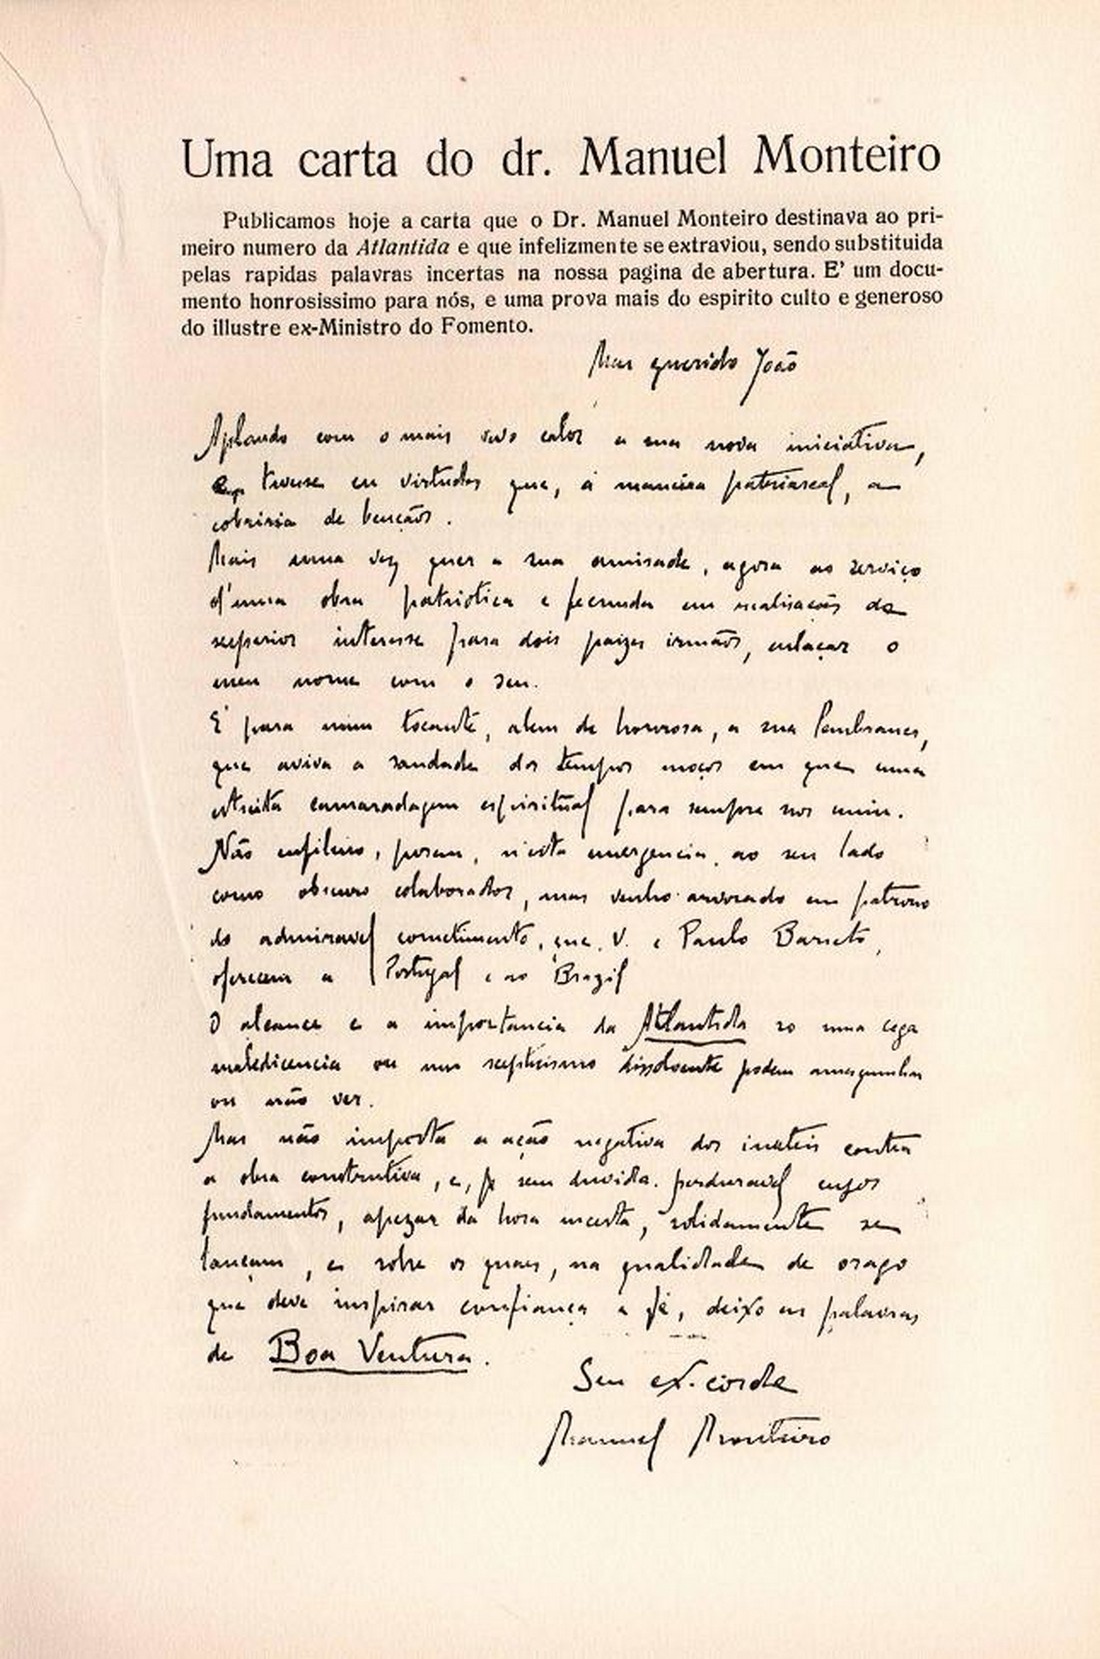 Uma carta do dr. Manuel Monteiro
Publicamos hoje a carta que o Dr. Manuel Monteiro destinava ao pri-
meiro numero da Atlantida e que infelizmente se extraviou, sendo substituida
pelas rapidas palavras incertas na nossa pagina de abertura. E' um docu-
mento honrosissimo para nós, e uma prova mais do espirito culto e generoso
do illustre ex-Ministro do Fomento.
Meu querido João
Aplaudo com o mais vivo calor a sua nova iniciativa,
e, tivesse eu virtudes que, á maneira patriarcal, a
cobriria de bençãos.
Mais uma vez quer a sua amisade, agora ao serviço
d'uma obra patriotica e fecunda em realisações de
superior interesse para dois paizes irmãos, enlaçar o
meu nome com o seu.
E' para mim tocante, alem de honrosa, a sua lembrança,
que aviva a saudade dos tempos moços em que uma
estreita camaradagem espiritual para sempre nos uniu.
Não enfileiro, porem, n'esta emergencia, ao seu lado
como obscuro colaborador, mas venho arvorado em patrono
do admiravel cometimento, que V. e Paulo Barreto,
oferecem a Portugal e ao Brazil
O alcance e a importancia da Atlantida so uma cega
maledicencia ou um septicismo dissolvente podem amesquinhar
ou não ver.
Mas não importa a ação negativa dos inuteis contra
a obra construtiva, e, sem duvida, perduravel cujos
fundamentos, apezar da hora incerta, solidamente se
lançam, e sobre os quaes, na qualidade de orago
que deve inspirar confiança e fé, deixo as palavras
de Boa Ventura.
Seu ex-corde
Manuel Monteiro